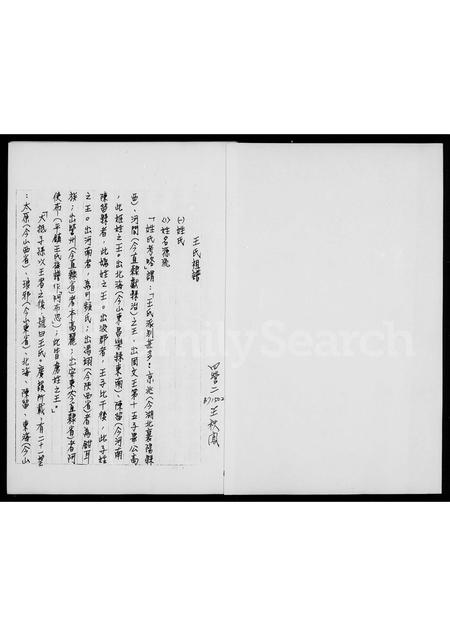 王氏祖譜
(一)姓氏
(1)姓名源流
「姓氏考略」謂:「王氏派別甚多:京兆(今湖北襄陽縣
西)、河間(今直隸獻縣治)之王,出周文王第十五子畢公高
,此姬姓之王。出北海(今山東昌樂縣東南)、陳留(今河南
陳留縣者,此媯姓之王。出汲郡者,王子比干後,此子姓
之王。出河南者,為可頻氏;出馮翊(今陝西省)者為鉗耳
族;出營州(今直隸省)者本高麗;出安東(今直隸省)者阿
使布(平鎮王氏族譜作「阿布思);此皆虜姓之王。」
「大抵子孫以王者之後,號曰王氏。廣韻所載,有二十一望
:太原(今山西省)、琅邪(今山東省)、北海、陳留、東海(今山
四營二
王秋鳳
FamilySearch